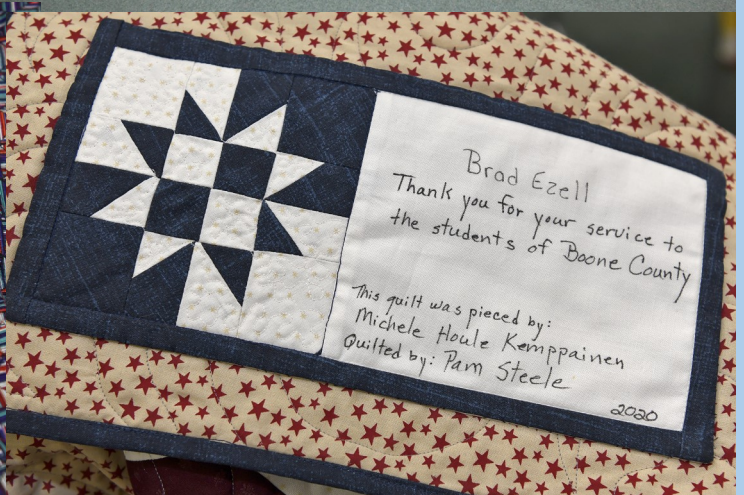 Brad Ezell
Thank you for your service to
the students of Boone County
This quilt was pieced by:
Michele Houle Kemppainen
Quilted by: Pam Steele
2020